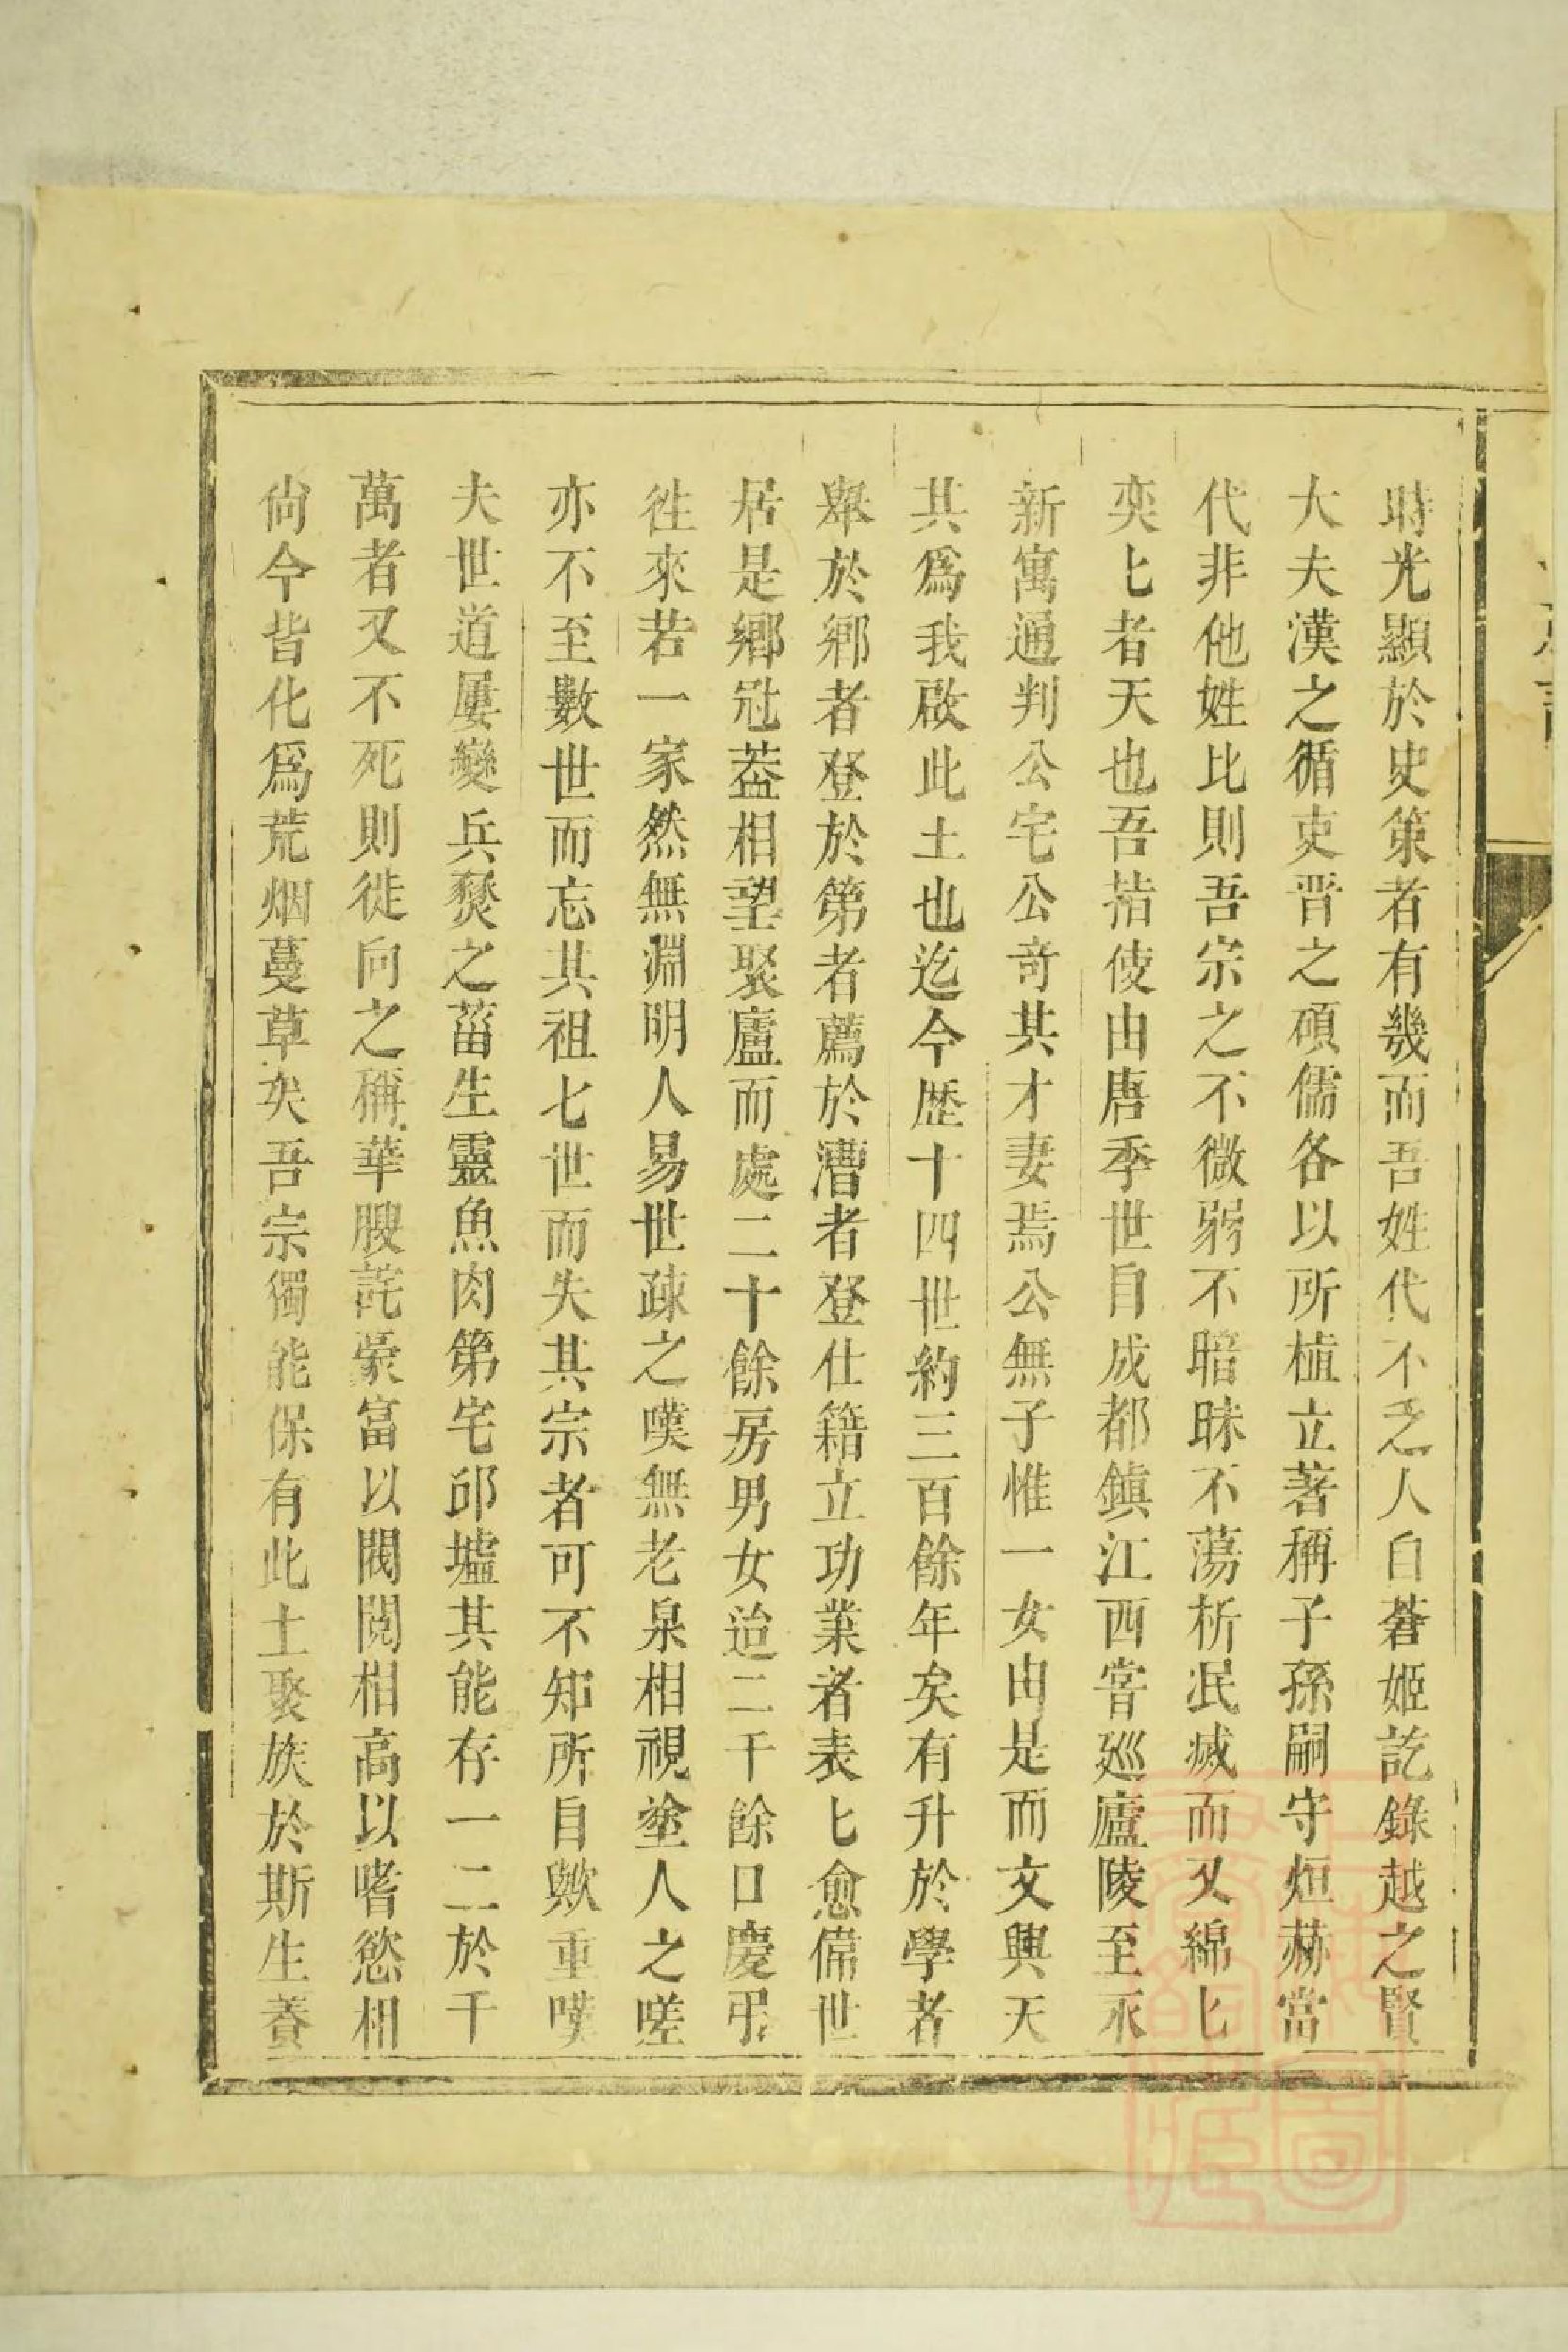 時光顯於史策者有幾而吾姓代不乏人自蒼姬訖錄越之賢
大夫漢之循吏晋之碩儒各以所植立著稱子孫嗣守烜赫當
代非他姓比則吾宗之不微弱不暗昧不蕩析泯滅而又綿匕
奕匕者天也吾指使由唐季世自成都鎮江西嘗廵廬陵至永
新寓通判公宅公竒其才妻焉公無子惟一女由是而文興天
其爲我啟此土也迄今歷十四世約三百餘年矣有升於學者
舉於鄉者登於第者薦於漕者登仕籍立功業者表匕愈偹世
居是鄉冠葢相望聚廬而處二十餘房男女迨二千餘口慶弔
徃來若一家然無淵明人易世疎之嘆無老泉相視塗人之嗟
亦不至數世而忘其祖七世而失其宗者可不知所自歟重嘆
夫世道屢變兵燹之菑生靈魚肉第宅邱墟其能存一二於千
萬者又不死則徙向之稱華腴詫豪富以閥閱相高以嗜慾相
尙今皆化爲荒烟蔓草矣吾宗獨能保有此土聚族於斯生養